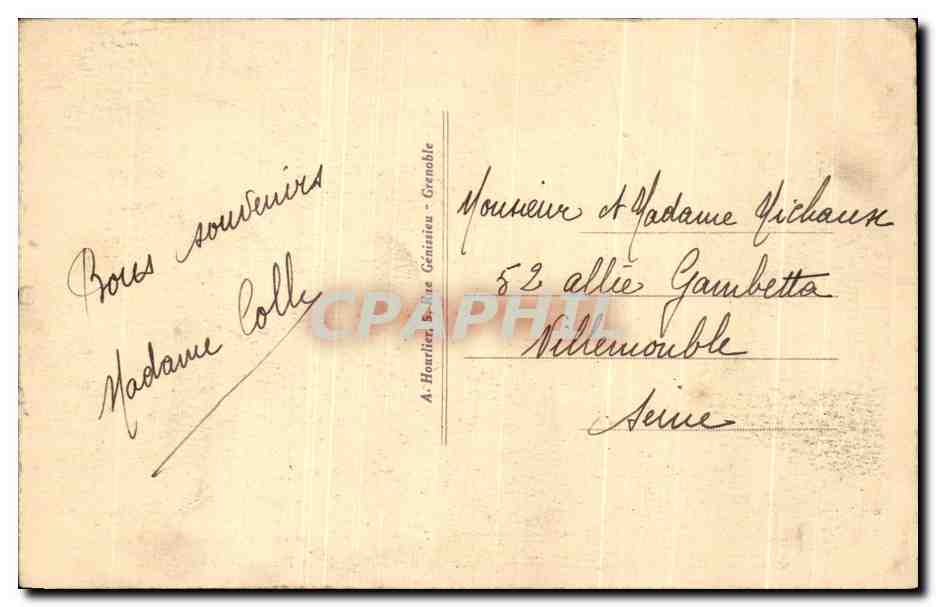 Bons souvenirs
Madame Colly
A. Hourlier, 5, Rue Génissieu - Grenoble
Monsieur et Madame Michaux
52 allée Gambetta
Villemomble
Seine
CPAPHIL